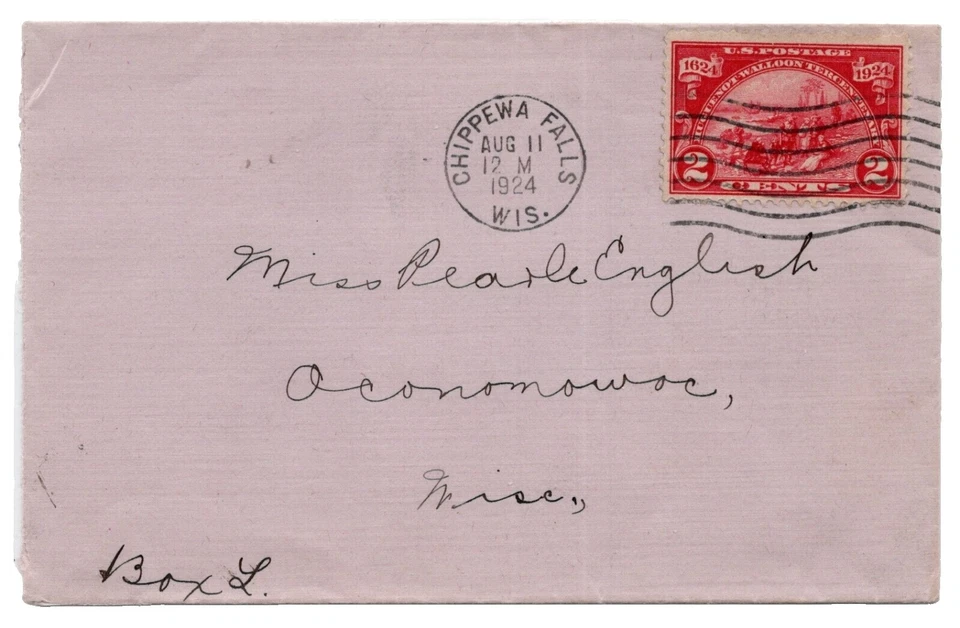 U.S. POSTAGE
1624 1924
HUGUENOT-WALLOON TERCENTENARY
2 CENTS 2
CHIPPEWA FALLS
AUG 11
12 M
1924
WIS.
Miss Pearle English
Oconomowoc,
Wisc.,
Box L.